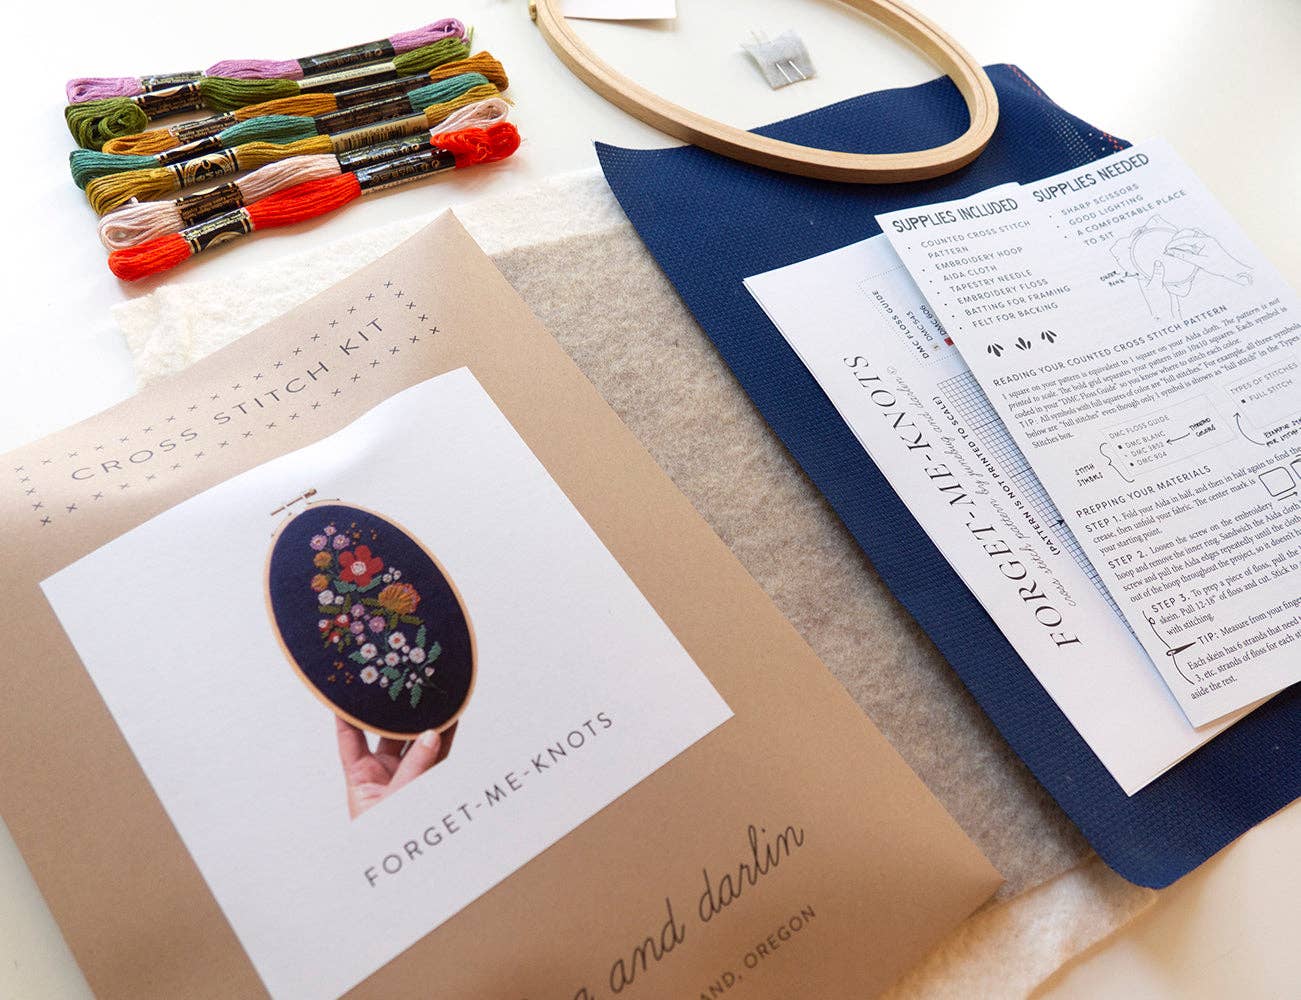 CROSS STITCH KIT
FORGET-ME-KNOTS
and darlin
OREGON
FORGET-ME-KNOTS
cross stitch pattern by junebug and darlin
(PATTERN IS NOT PRINTED TO SCALE)
DMC FLOSS GUIDE
DMC 543
DMC 606
SUPPLIES INCLUDED
• COUNTED CROSS STITCH
PATTERN
• EMBROIDERY HOOP
• AIDA CLOTH
• TAPESTRY NEEDLE
• EMBROIDERY FLOSS
• BATTING FOR FRAMING
• FELT FOR BACKING
SUPPLIES NEEDED
• SHARP SCISSORS
• GOOD LIGHTING
• A COMFORTABLE PLACE
TO SIT
READING YOUR COUNTED CROSS STITCH PATTERN
1 square on your pattern is equivalent to 1 square on your Aida cloth. The pattern is not
printed to scale. The bold grid separates your pattern into 10x10 squares. Each symbol is
coded in your "DMC Floss Guide" so you know where to stitch each color.
TIP: All symbols with full squares of color are "full stitches." For example, all three symbols
below are "full stitches" even though only 1 symbol is shown as "full stitch" in the "Types
of Stitches box.
DMC FLOSS GUIDE
DMC BLANC
DMC 3852
DMC 904
STITCH
SYMBOLS
THREAD
COLORS
TYPES OF STITCHES
FULL STITCH
PREPPING YOUR MATERIALS
STEP 1. Fold your Aida in half, and then in half again to find the
crease, then unfold your fabric. The center mark is
your starting point.
STEP 2. Loosen the screw on the embroidery
hoop and remove the inner ring. Sandwich the Aida cloth
screw and pull the Aida edges repeatedly until the cloth
out of the hoop throughout the project, so it doesn't
STEP 3. To prep a piece of floss, pull the
skein. Pull 12-18" of floss and cut. Stick to
with stitching.
TIP: Measure from your finger
Each skein has 6 strands that need
3, etc. strands of floss for each
aside the rest.